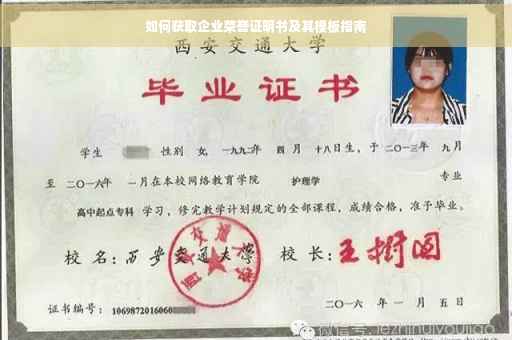 如何获取企业荣誉证明书及其模板指南
西安交通大学
毕业证书
学生 性别 女,一九九二年 四 月 十八日生,于 二〇一三年 九月
至 二〇一六年 一月在本校网络教育学院 护理学 专业
高中起点专科 学习,修完教学计划规定的全部课程,成绩合格,准予毕业。
校 名:西安交通大学 校 长:王树国
西安交通大学
证书编号:1069872016060
二〇一六 年 一 月 五 日
微信号:jezhihuiyoujiao